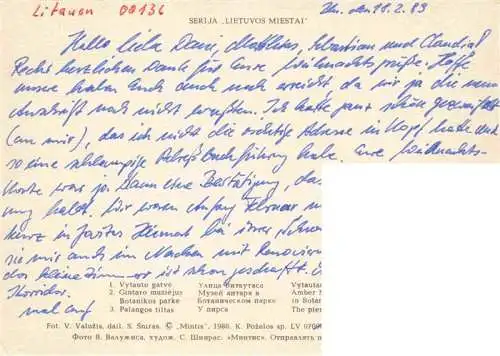 Litauen 00136
SERIJA „LIETUVOS MIESTAI"
Ulm, den 18.2.89
Hallo liebe Dani, Matthias, Sebastian und Claudia!
Recht herzlichen Dank für Eure Weihnachtsgrüße. Hoffe
unsere haben Euch auch noch erreicht da wir ja die neue
Anschrift noch nicht wußten. Ich hatte ganz schön gezweifelt
(an mir), das ich nicht die richtige Adresse im Kopf hatte und
so eine schlampige Adreßbuchführung habe. Eure Weihnachts-
karte war ja dann eine Bestätigung, da
ung habt. Wir waren Anfang Februar
kurz in bei ihrer
sie mir auch im Machen mit Renovieru
das kleine Zimmer ist schon geschafft.
Korridor.
mal auf
1. Vytauto gatvė
2. Gintaro muziejus
Botanikos parke
3. Palangos tiltas
Улица Витаутаса
Музей янтаря в
Ботаническом парке
У пирса
Vytautas
Amber M
in Botan
The pier
Fot. V. Valužis, dail. S. Šnuras. © „Mintis", 1980. K. Poželos sp. LV 0709
Фото В. Валужиса, худож. С. Шнирас. «Минтис». Отправлять п